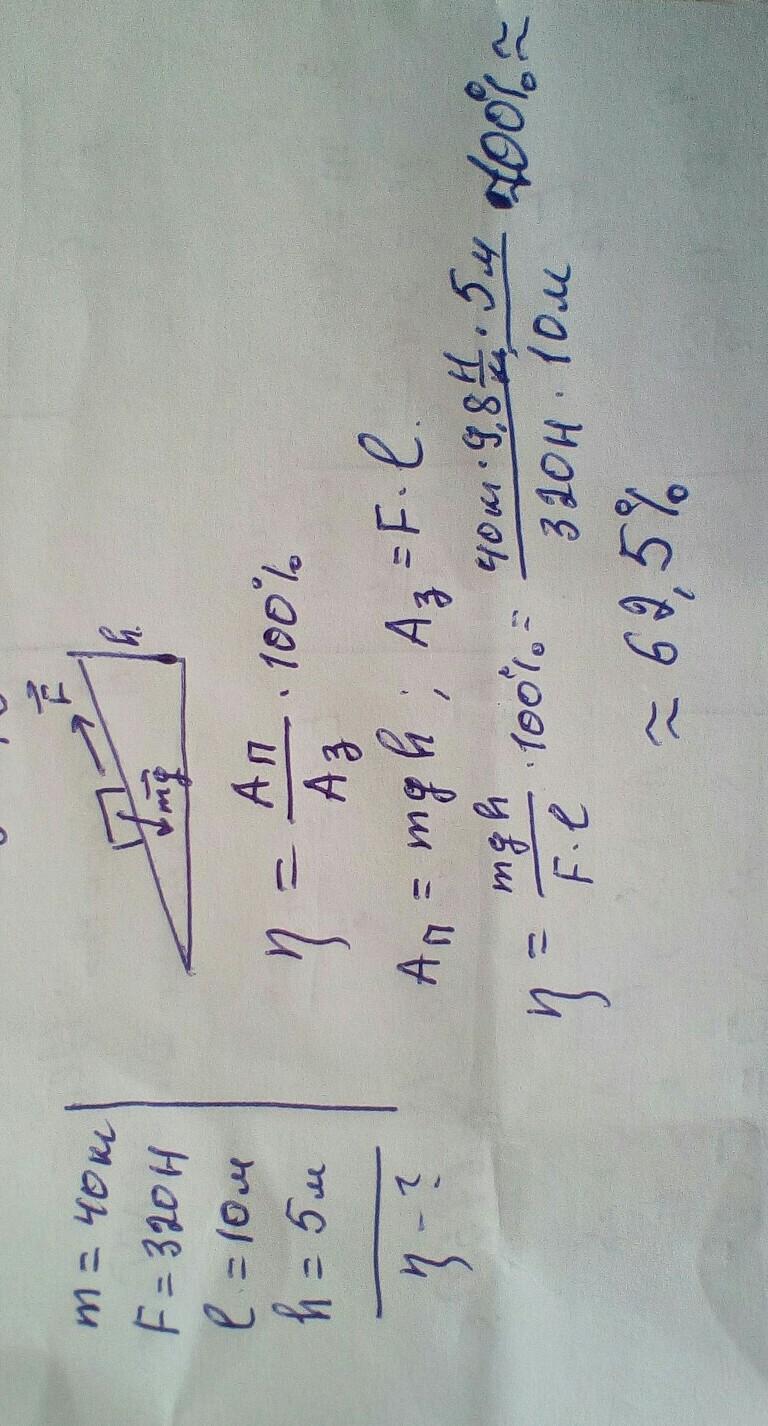 m = 40кг
F = 320Н
l = 10м
h = 5м
η - ?
F
h
mg
η = Aп/Aз · 100%
Aп = mgh ; Aз = F·l.
η = mgh/F·l · 100% = 40кг · 9,8 Н/кг · 5м/320Н · 10м 100% ≈
≈ 62,5%